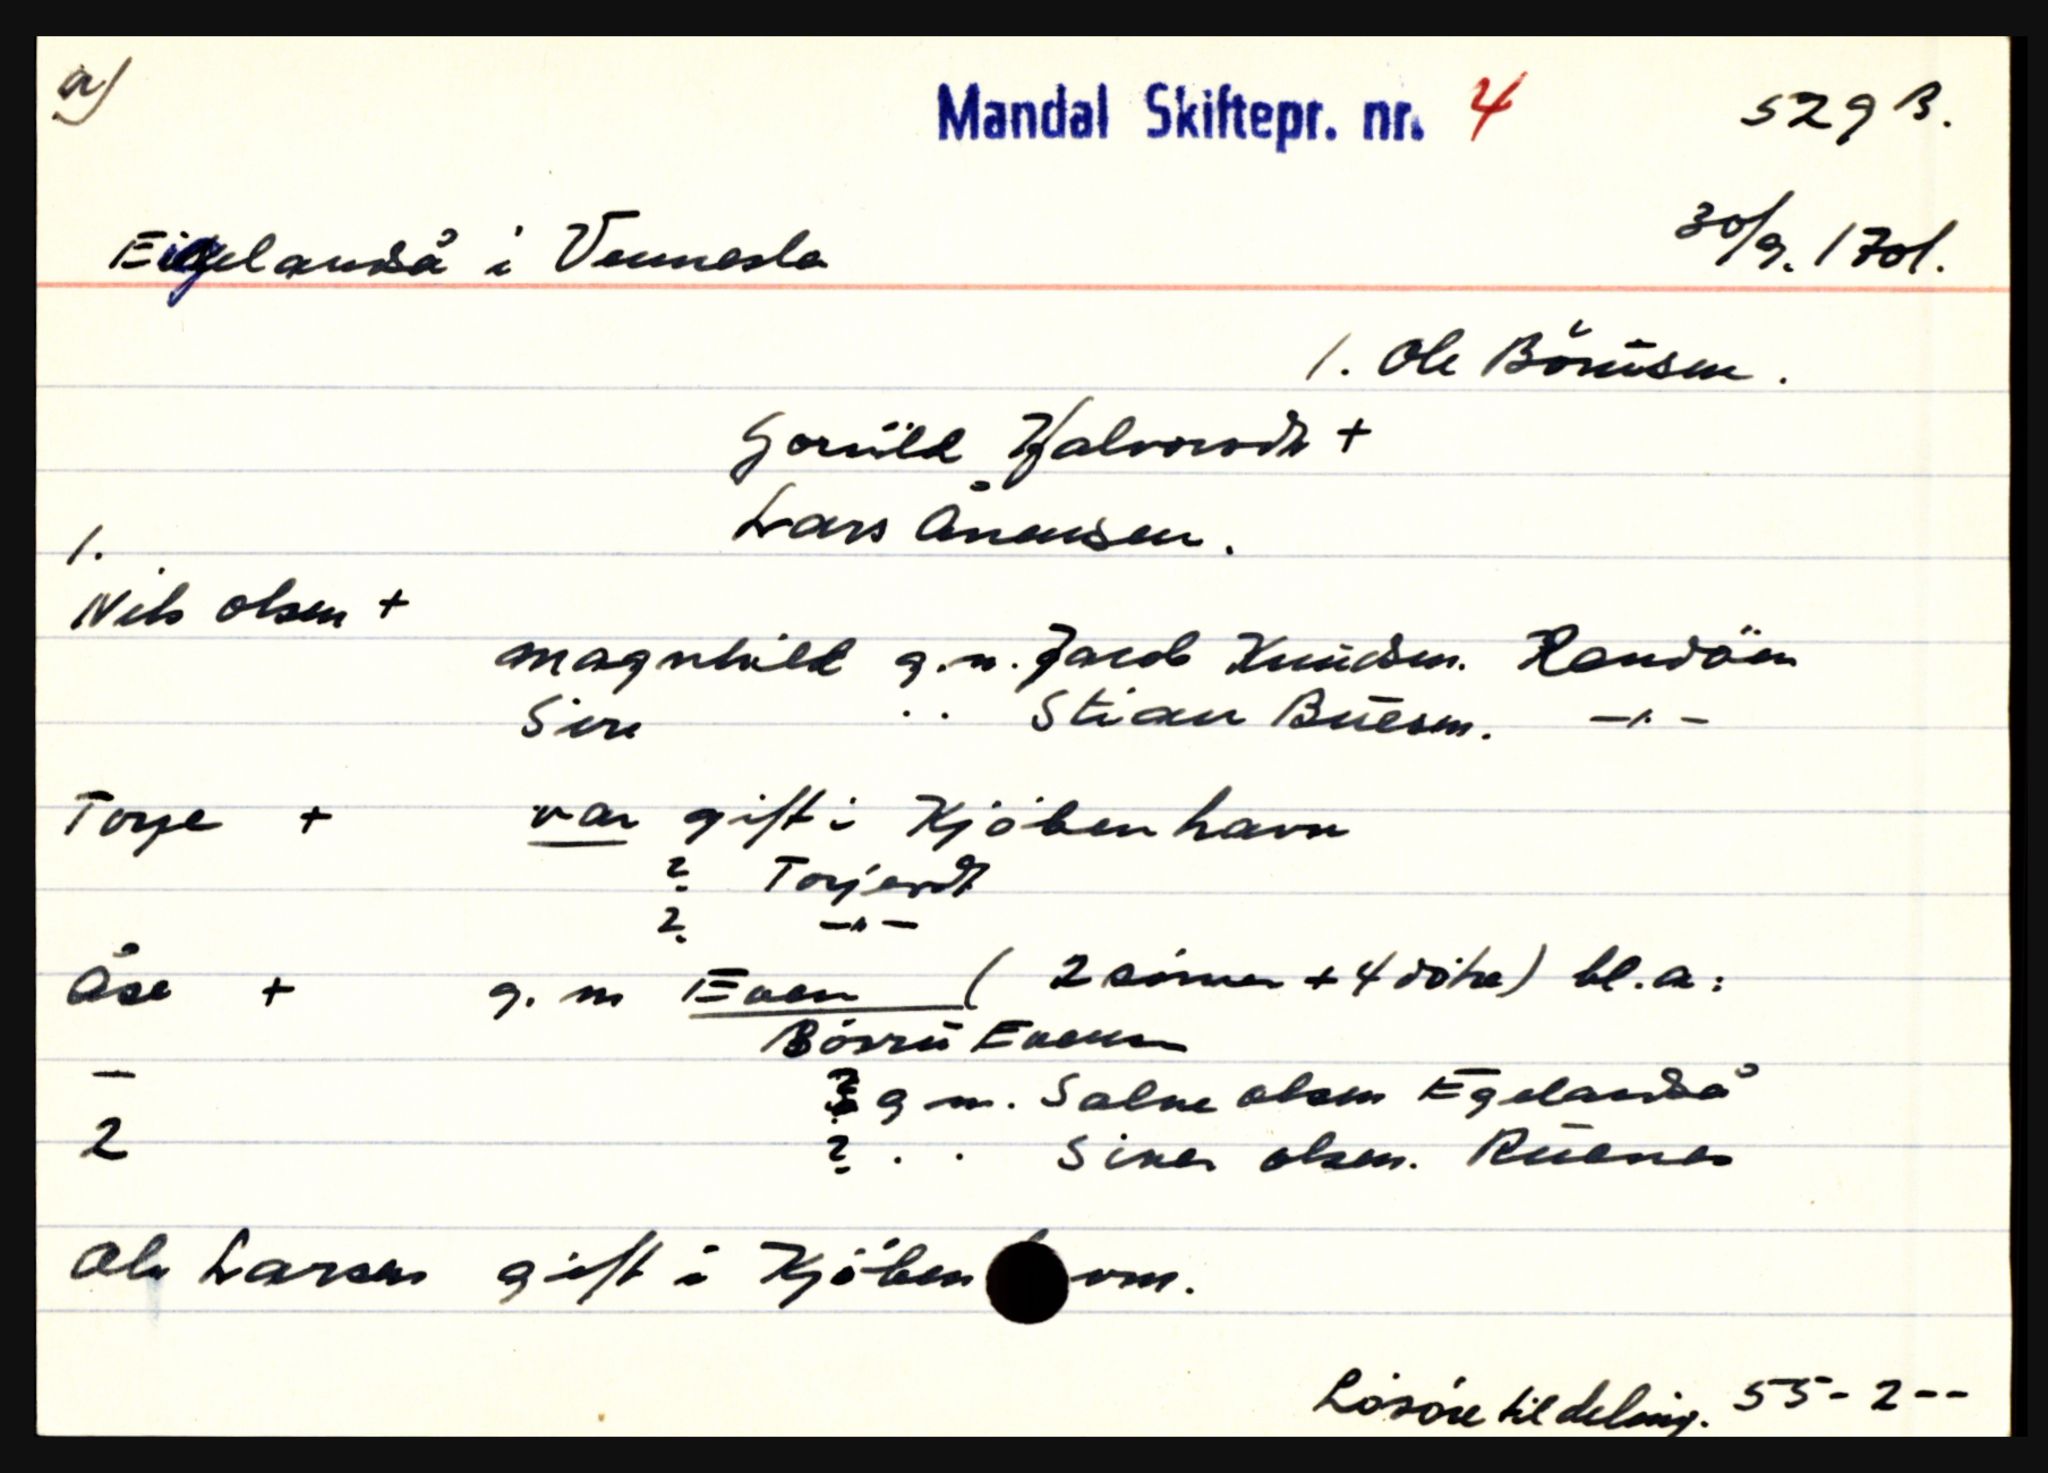 a)
Mandal Skiftepr. nr. 4 529 B.
Eigelandså i Vennesla 30/9. 1701.
1. Ole Börŭsen.
Gonŭld Halvorsdt +
Lars Ånensen.
1.
Nils olsen +
Magnhild g.m. Jacob Knudsen. Randöen
Siri " Stian Bŭesen. -"-
Torje + var gift i Kjöbenhavn
? Torjesdt
? -"-
Åse + g. m Even (2 sönner + 4 dötre) bl.a:
Börrŭ Evensen
? g m. Salve olsen Egelandså
2 ? . . Siver olsen. Rŭenes
Ole Larsen gift i Kjöben vn.
Lösöre til deling. 55-2--